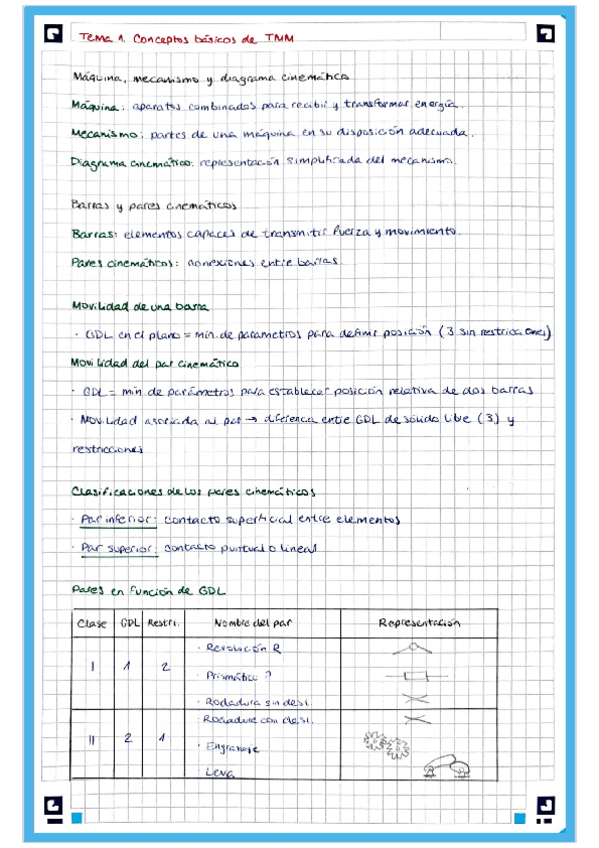 Tema 1. Conceptos básicos de TMM
Máquina, mecanismo y diagrama cinemático
Máquina: aparatos combinados para recibir y transformar energía.
Mecanismo: partes de una máquina en su disposición adecuada.
Diagrama cinemático: representación simplificada del mecanismo.
Barras y pares cinemáticos
Barras: elementos capaces de transmitir fuerza y movimiento.
Pares cinemáticos: conexiones entre barras
Movilidad de una barra
· GDL en el plano = mín. de parametros para definir posición (3 sin restricciones)
Movilidad del par cinemático
· GDL = mín de parámetros para establecer posición relativa de dos barras
· Movilidad asociada al par → diferencia entre GDL de sólido libre (3) y
restricciones
Clasificaciones de los pares cinemáticos
· Par inferior: contacto superficial entre elementos
· Par superior: contacto puntual o lineal
Pares en función de GDL
Clase GDL Restri. Nombre del par Representación
I 1 2 · Revolución R
· Prismático P
· Rodadura sin desl.
II 2 1 · Rodadura con desl.
· Engranaje
Leva